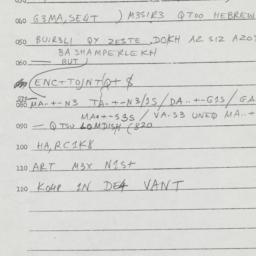 040 G3MA,SEQT ) M3SIR3 QTOO HEBREW
050 BUIRSLI QY ZESTE .DOKH AR SIZ AZO
BASHAMPERLEKH
060 — BUT )
ENC+TOJNT/Q+ $
080 MA..+-N3 TA..+-N3/1S / DA..+-G1S/ GA
MA++-S3S / VA-S3 UNEQ MA..+
090 — QTSU LOMDISH (820
100 HA,RC1K8
110 ART M3X N1S+
120 KOMP 1N DE4 VANT